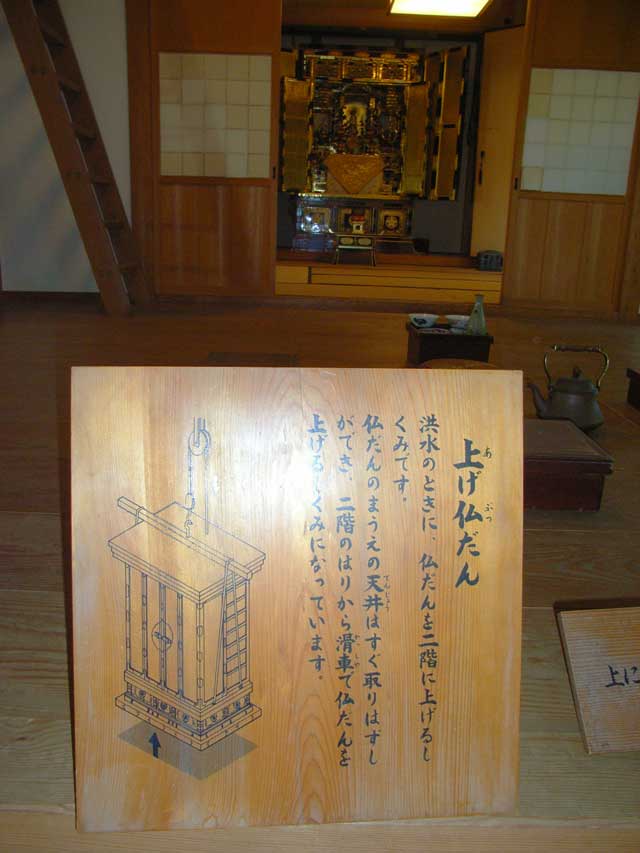 上げ仏だん
あ
ぶつ
洪水のときに、仏だんを二階に上げるし
くみです。
仏だんのまうえの天井はすぐ取りはずし
てんじょう
ができ、二階のはりから滑車で仏だんを
かっしゃ
上げるしくみになっています。
上に